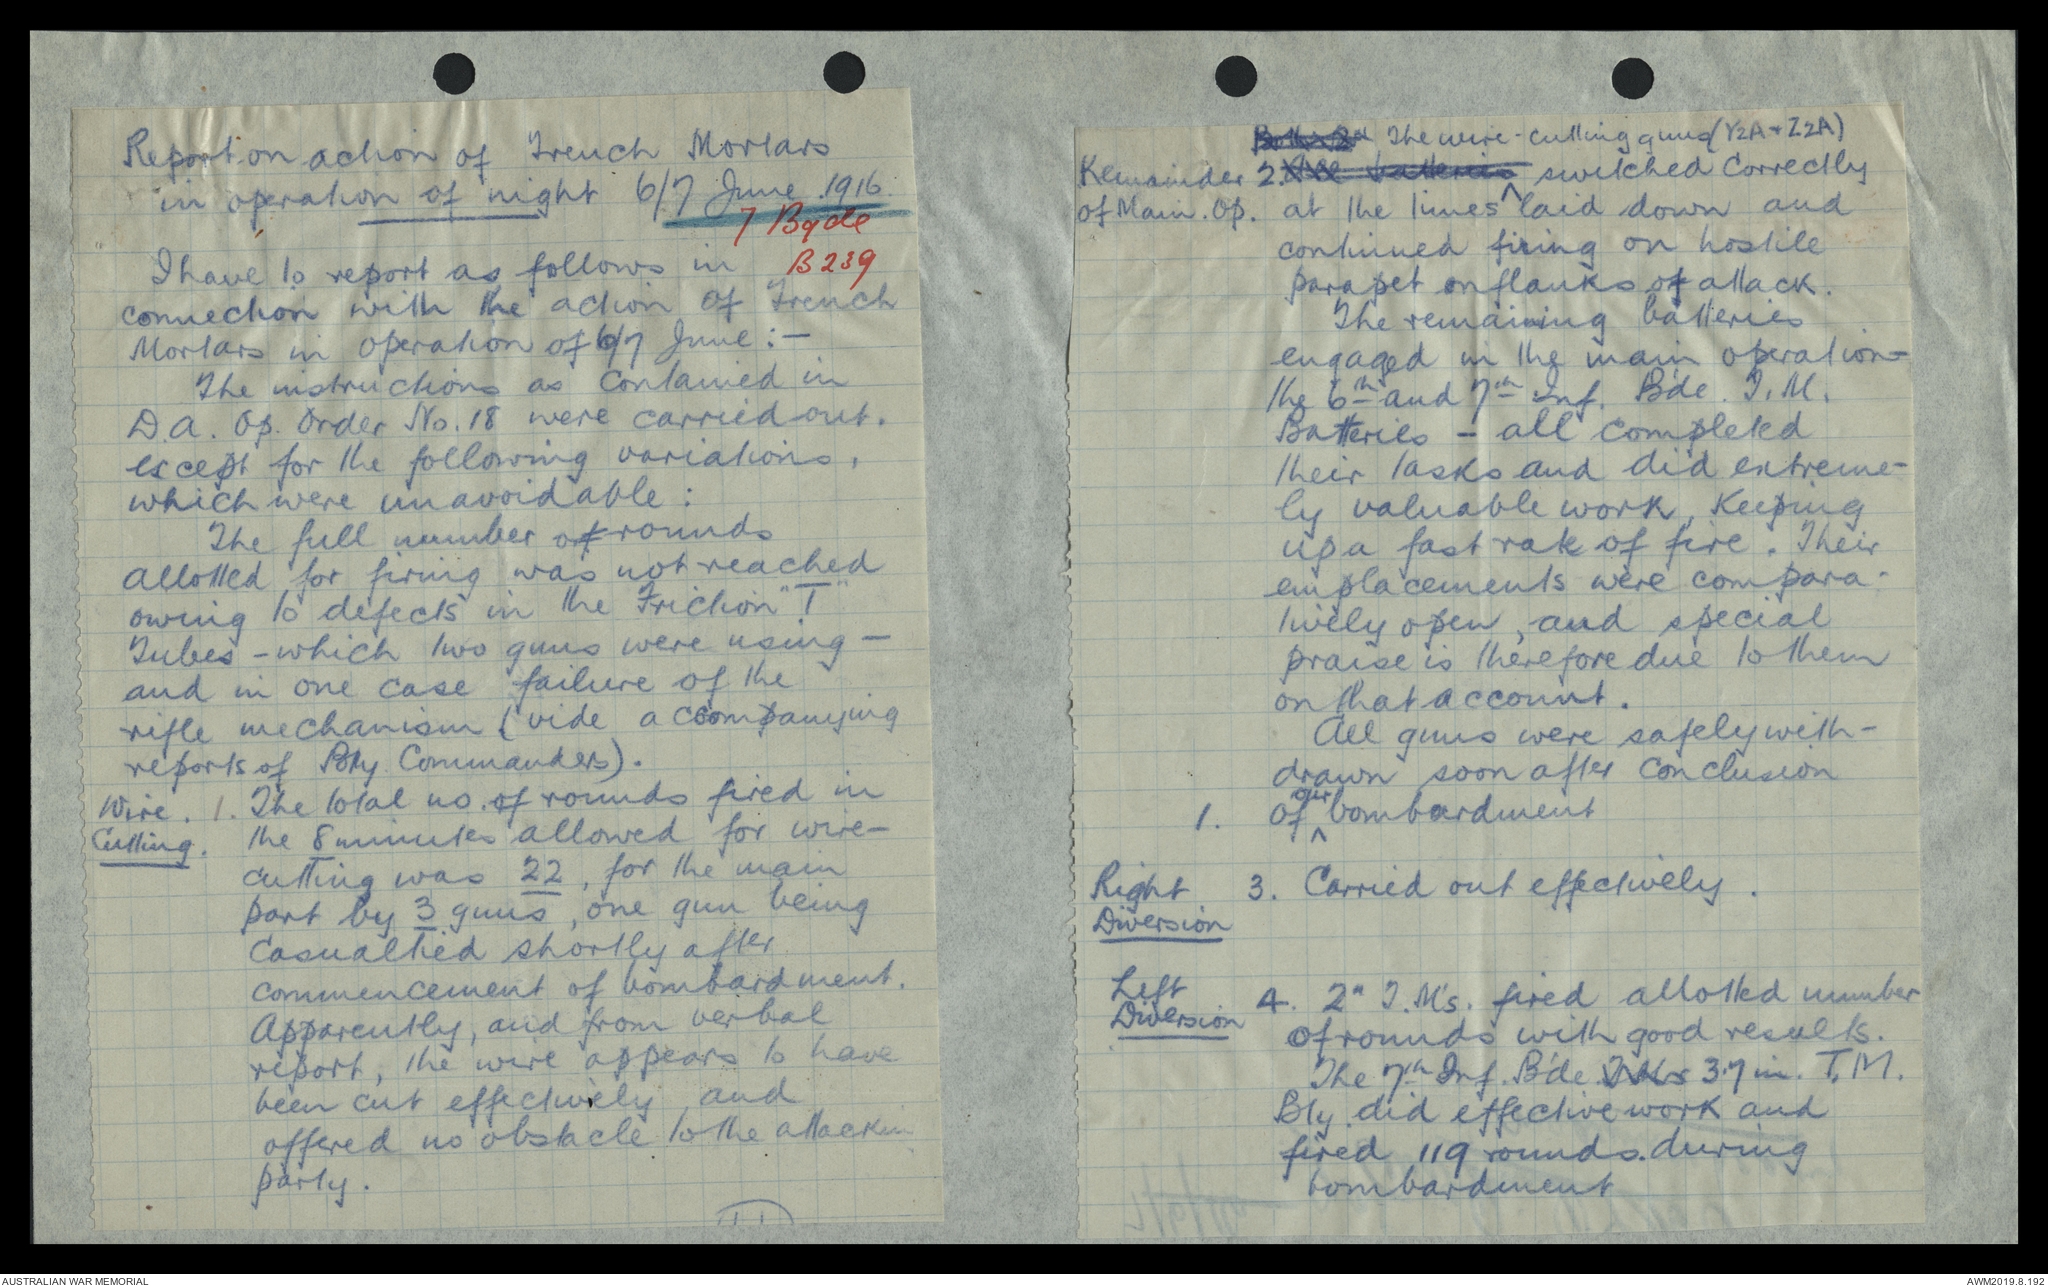 Report on action of Trench Mortars
in operation of night 6/7 June 1916.
7 Bgde
B239
I have to report as follows in
connection with the action of Trench
Mortars in operation of 6/7 June :-
The instructions as contained in
D.A. Op. Order No. 18 were carried out.
except for the following variations,
which were unavoidable:
The full number of rounds
allotted for firing was not reached
owing to defects in the Friction "T"
Tubes - which two guns were using -
and in one case failure of the
rifle mechanism (vide accompanying
reports of Bty Commanders).
Wire. 1. The total no. of rounds fired in
Cutting. the 8 minutes allowed for wire-
cutting was 22, for the main
part by 3 guns, one gun being
casualtied shortly after
commencement of bombardment.
Apparently, and from verbal
report, the wire appears to have
been cut effectively and
offered no obstacle to the attackin
party.
The wire-cutting guns (Y2A + Z2A)
Remainder 2. switched correctly
of Main. Op. at the times laid down and
continued firing on hostile
parapet on flanks of attack.
The remaining batteries
engaged in the main operation -
the 6th and 7th Inf. Bde. T.M.
Batteries - all completed
their tasks and did extreme-
ly valuable work, keeping
up a fast rate of fire. Their
emplacements were compara-
tively open, and special
praise is therefore due to them
on that account.
All guns were safely with-
drawn soon after conclusion
1. of our bombardment
Right 3. Carried out effectively.
Diversion
Left 4. 2" T.M's. fired allotted number
Diversion of rounds with good results.
The 7th Inf. B'de 3.7 in. T.M.
Bty. did effective work and
fired 119 rounds during
bombardment
AUSTRALIAN WAR MEMORIAL
AWM2019.8.192